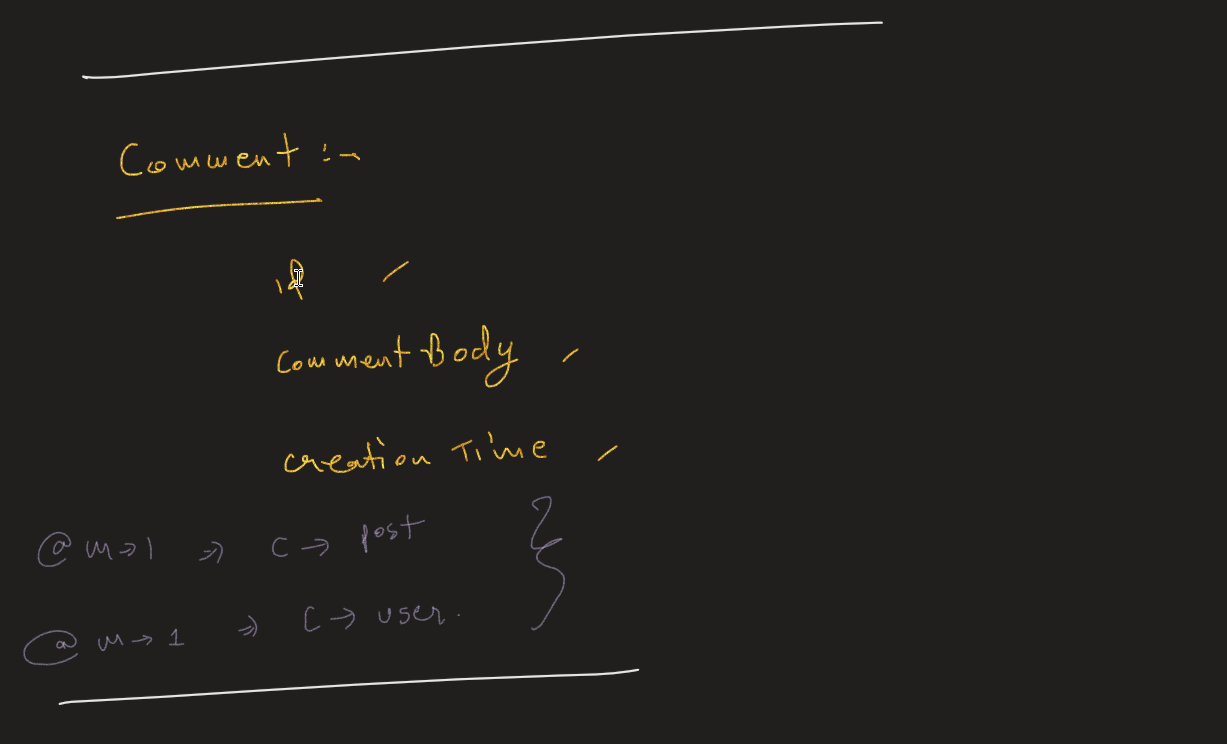 Comment :-
id
comment Body
creation Time
@ m→1 ⇒ C → post
@ m→1 ⇒ C → user.